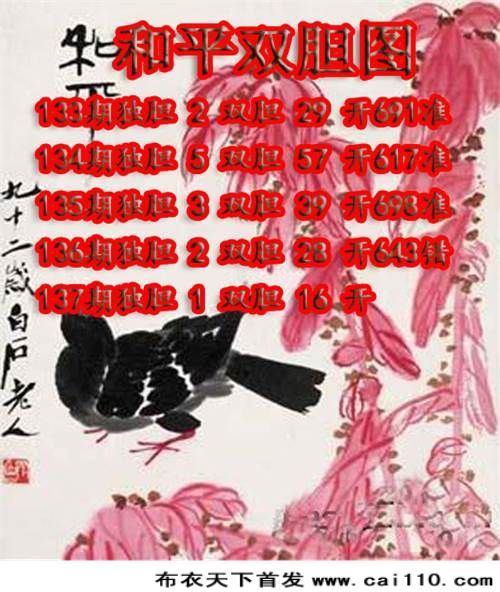 和平双胆图
133期独胆 2 双胆 29 开691准
134期独胆 5 双胆 57 开617准
135期独胆 3 双胆 39 开698准
136期独胆 2 双胆 28 开643错
137期独胆 1 双胆 16 开
九十二歲白石老人
布衣天下首发 www.cai110.com